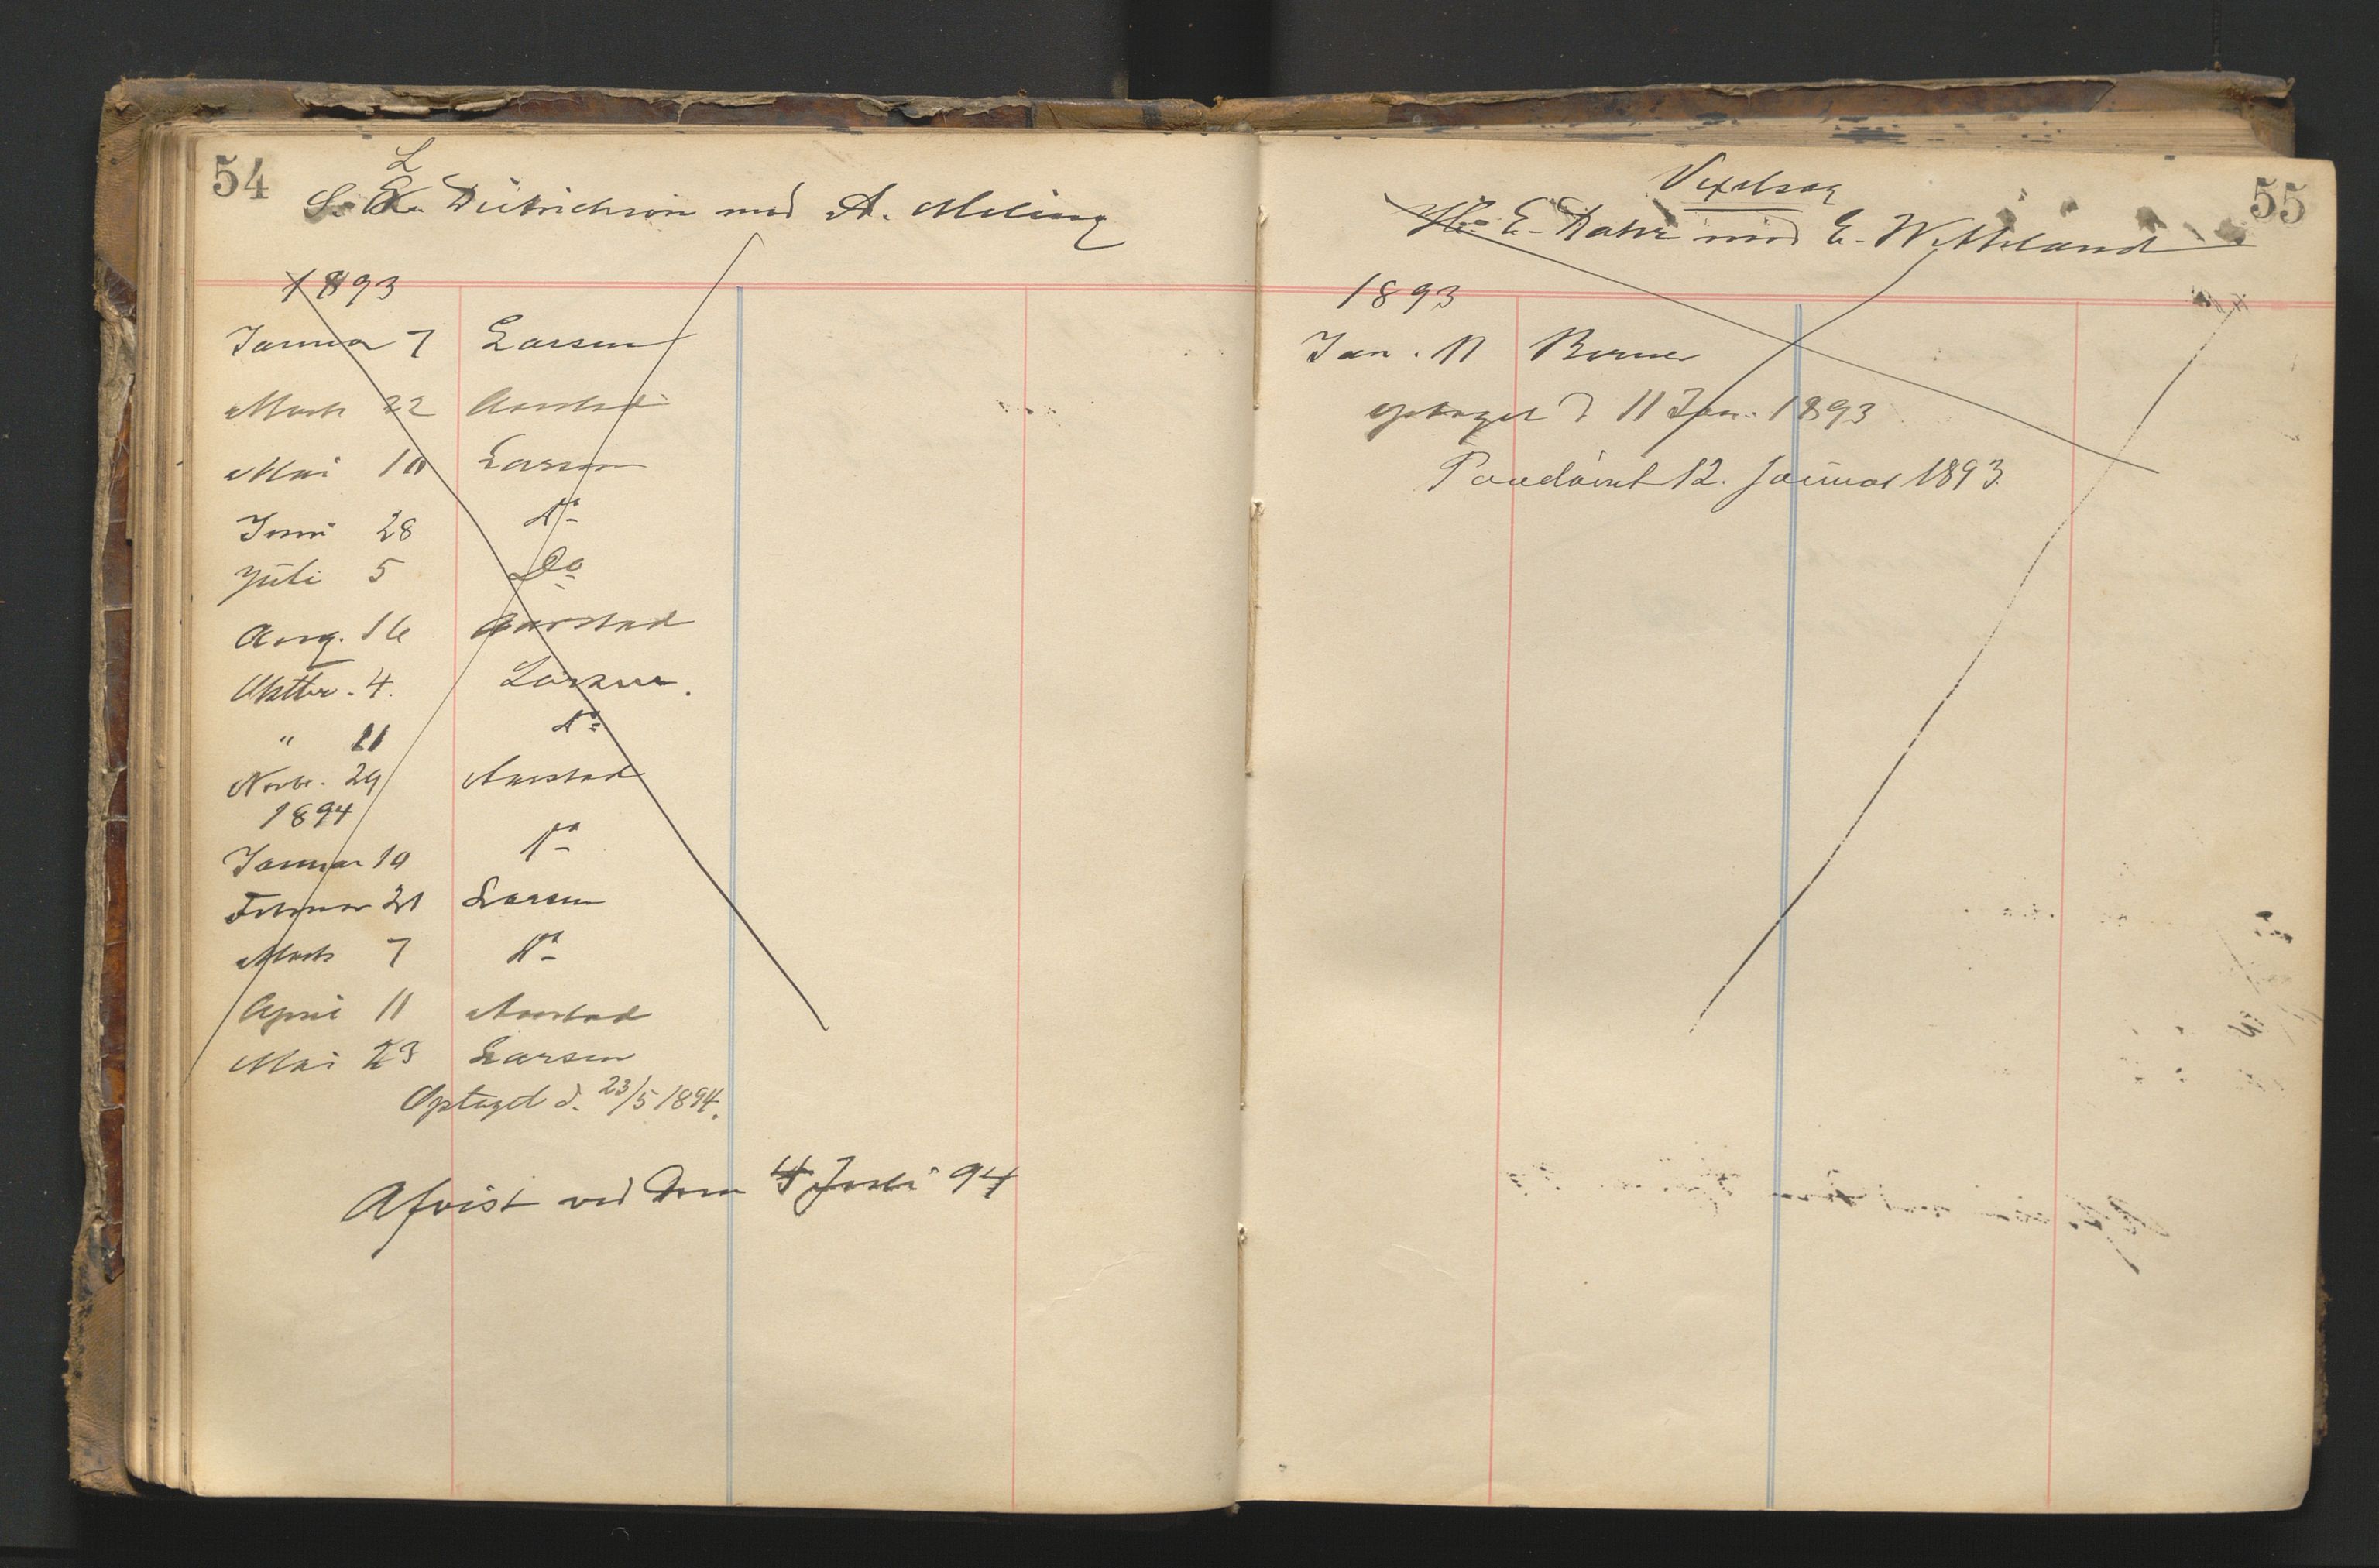 54
S. L. Dietrichson mod A. Meling
1893
Januar 7 Larsen
Marts 22 Aarstad
Mai 10 Larsen
Juni 28 Do
Juli 5 Do
Aug. 16 Aarstad
Oktbr. 4. Larsen.
" 11 Do
Novbr. 29 Aarstad
1894
Januar 10 Do
Februar 21 Larsen
Marts 7 Do
April 11 Aarstad
Mai 23 Larsen
Optaget d. 23/5 1894.
Afvist ved Dom 4 Juli 94
55
Vexelsag
E. Dahl mod E. Wetteland
1893
Jan. 11 Berner
optaget d 11 Jan. 1893
Paadømt 12. Januar 1893.